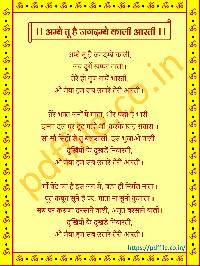 ।। अम्बे तू है जगदम्बे काली आरती ।।
अम्बे तू है जगदम्बे काली,
जय दुर्गे खप्पर वाली ।
तेरे ही गुण गायें भारती,
ओ मैया हम सब उतारे तेरी आरती ।
तेरे भक्त जनों पे माता, भीर पड़ी है भारी
दानव दल पर टूट पड़ो माँ करके सिंह सवारी
सौ सौ सिंहों से तु बलशाली, दस भुजाओं वाली
दुखियों के दुखडें निवारती,
ओ मैया हम सब उतारे तेरी आरती ।
माँ बेटे का है इस जग में, बड़ा ही निर्मल नाता
पूत कपूत सुने है पर, माता ना सुनी कुमाता
सब पर करुणा दरसाने वाली, अमृत बरसाने वाली
दुखियों के दुखडे निवारती,
ओ मैया हम सब उतारे तेरी आरती ।
https://pdffile.co.in/